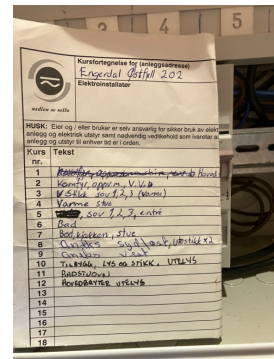 4
5
Kursfortegnelse for (anleggsadresse)
Engerdal Østfjell 202
Elektroinstallatør
medlem av nelfo
HUSK: Eier og / eller bruker er selv ansvarlig for sikker bruk av elekt
anlegg og elektrisk utstyr samt nødvendig vedlikehold som ivaretar a
anlegg og utstyr til enhver tid er i orden.
Kurs nr. Tekst
1 Hoved
2 Komfyr, oppv.m, V.V.b
3 Stikk sov 1,2,3 (varme)
4 Varme stue
5 sov 1,2,3, entré
6 Bad
7 Bod, kjøkken, stue
8 Anneks sydøst, utestikk x2
9 Anneks vest
10 TILBYGG, LYS OG STIKK, UTELYS
11 BADSTUOVN
12 HOVEDBRYTER UTELYS
13
14
15
16
17
18